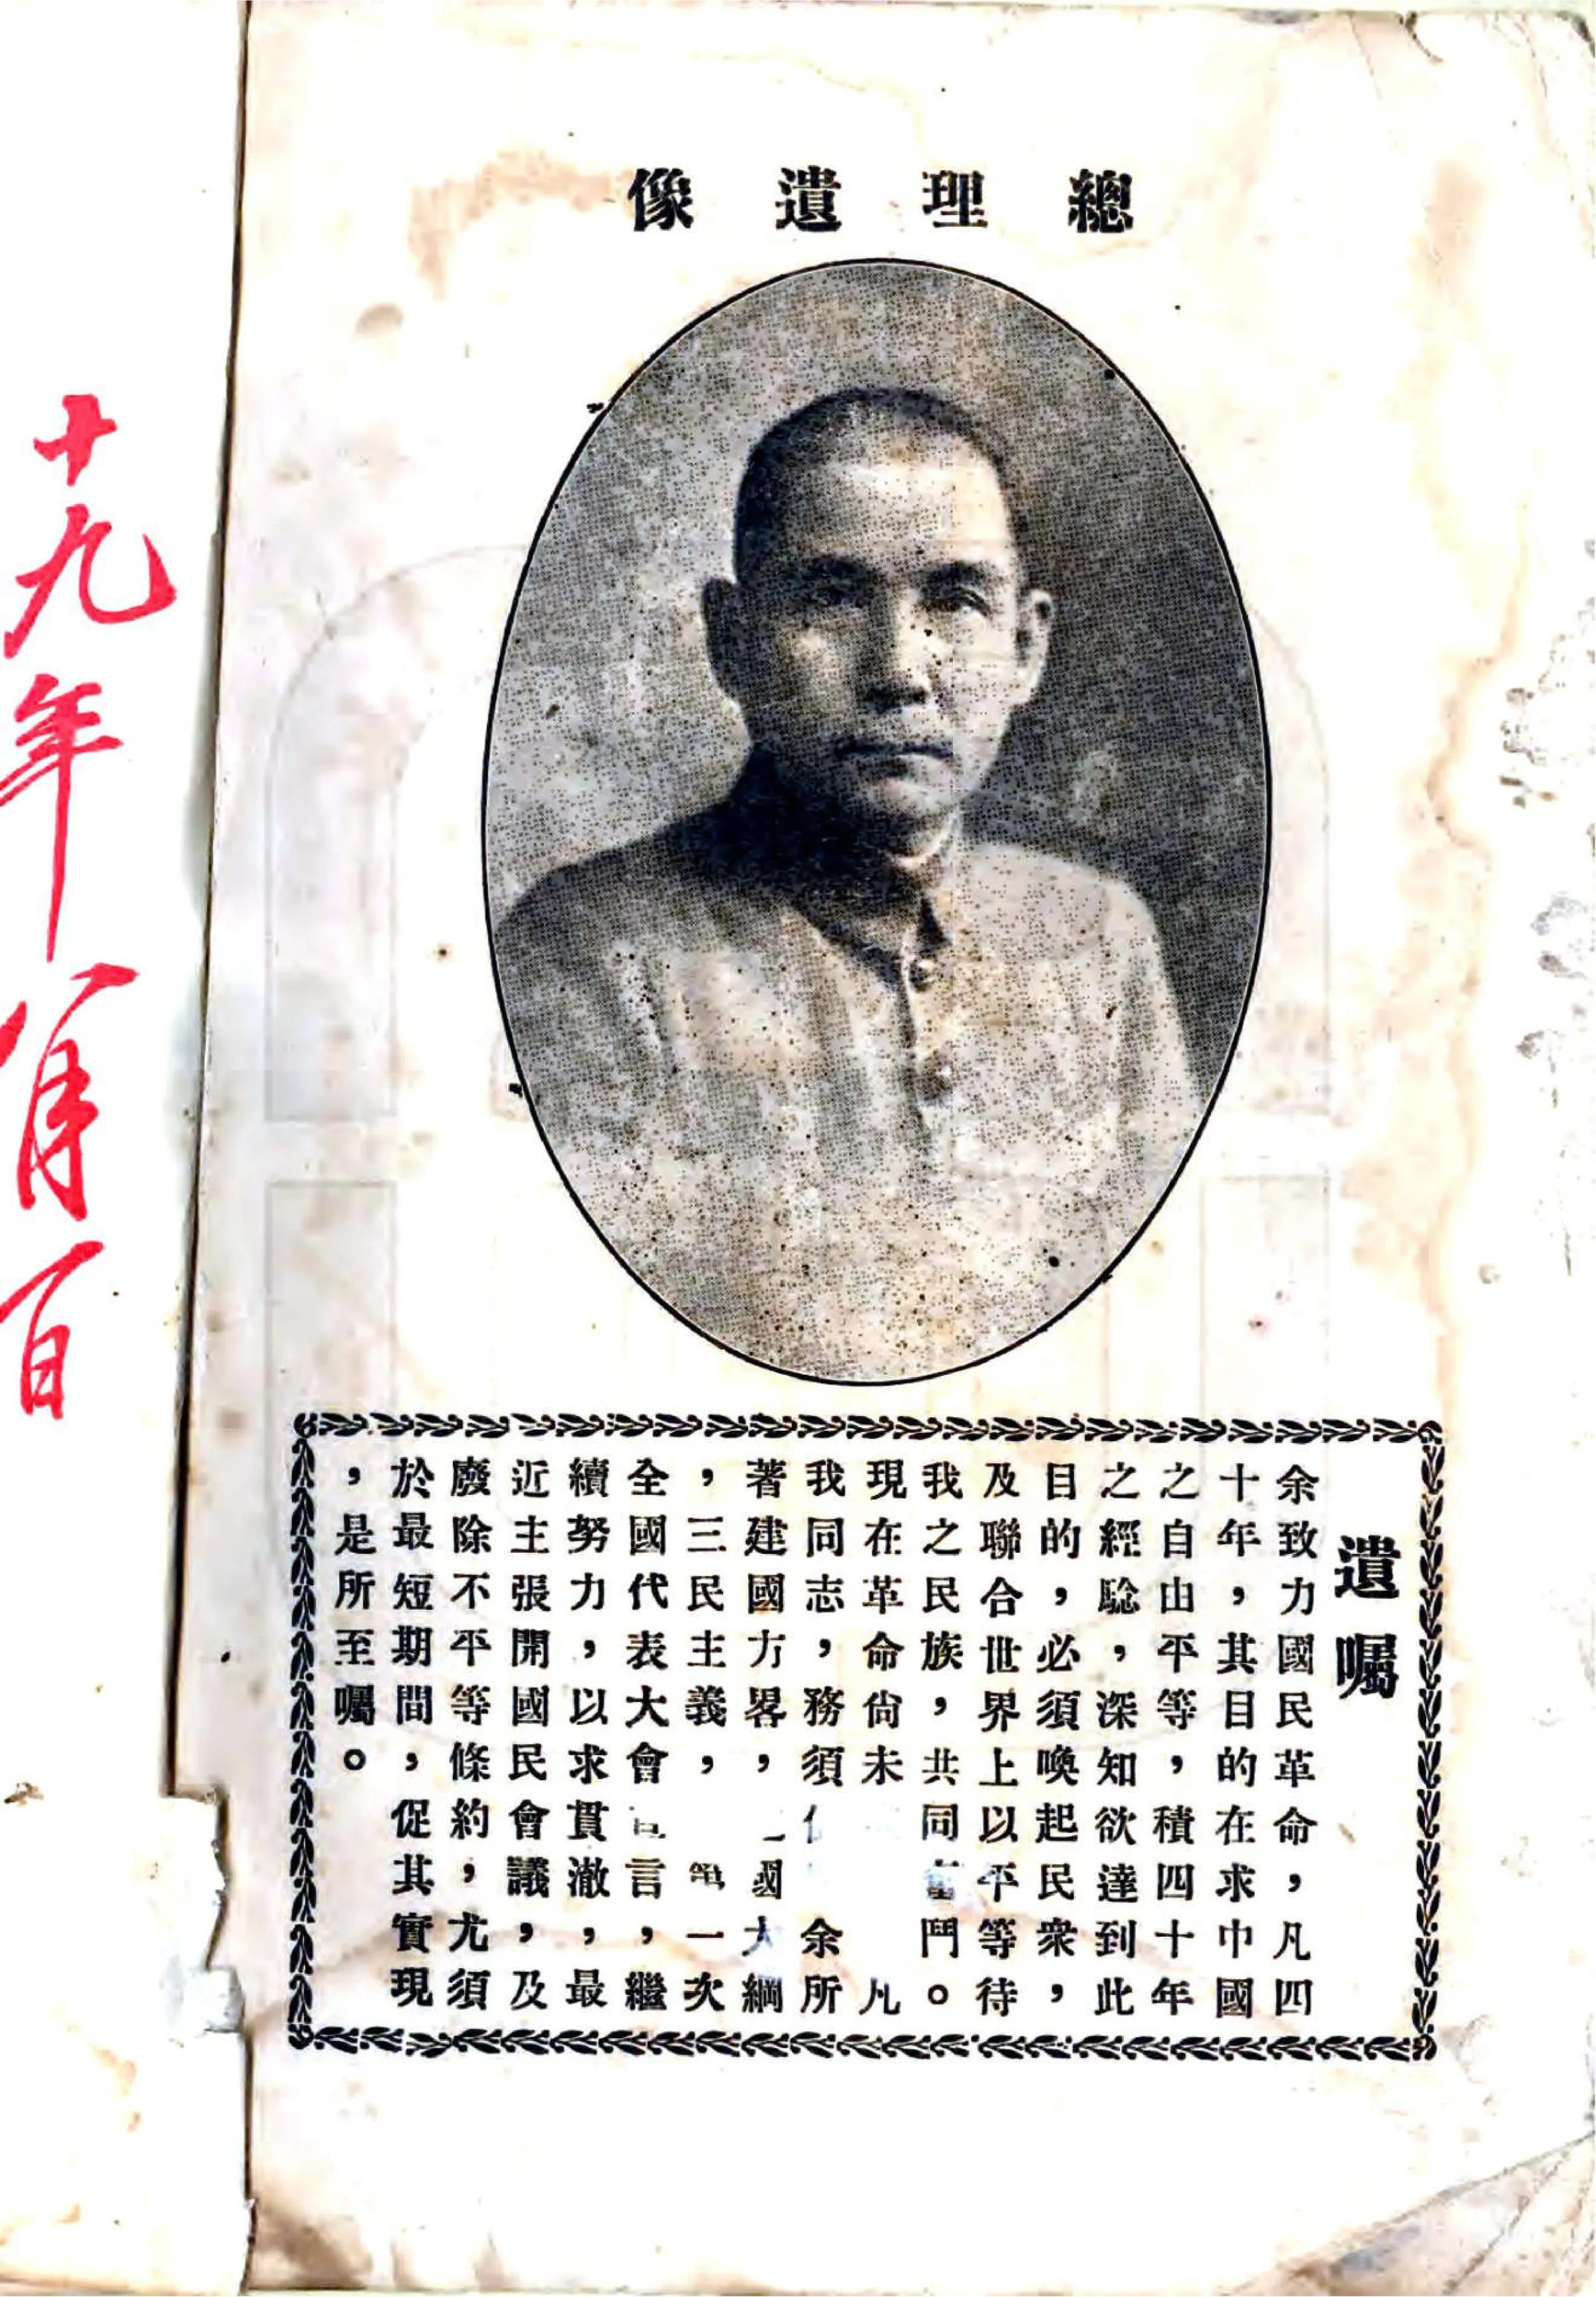 總理遺像
遺囑
余致力國民革命，凡四
十年，其目的在求中國
之自由平等，積四十年
之經騐，深知欲達到此
目的，必須喚起民衆，
及聯合世界上以平等待
我之民族，共同鬥。
現在革命尙未凡
我同志，務須余所
著建國方畧，國大綱
，三民主義，一次
全國代表大會言，繼
續努力，以求貫澈，最
近主張開國民會議，及
廢除不平等條約，尤須
於最短期間，促其實現
，是所至囑。
十九年八月一日